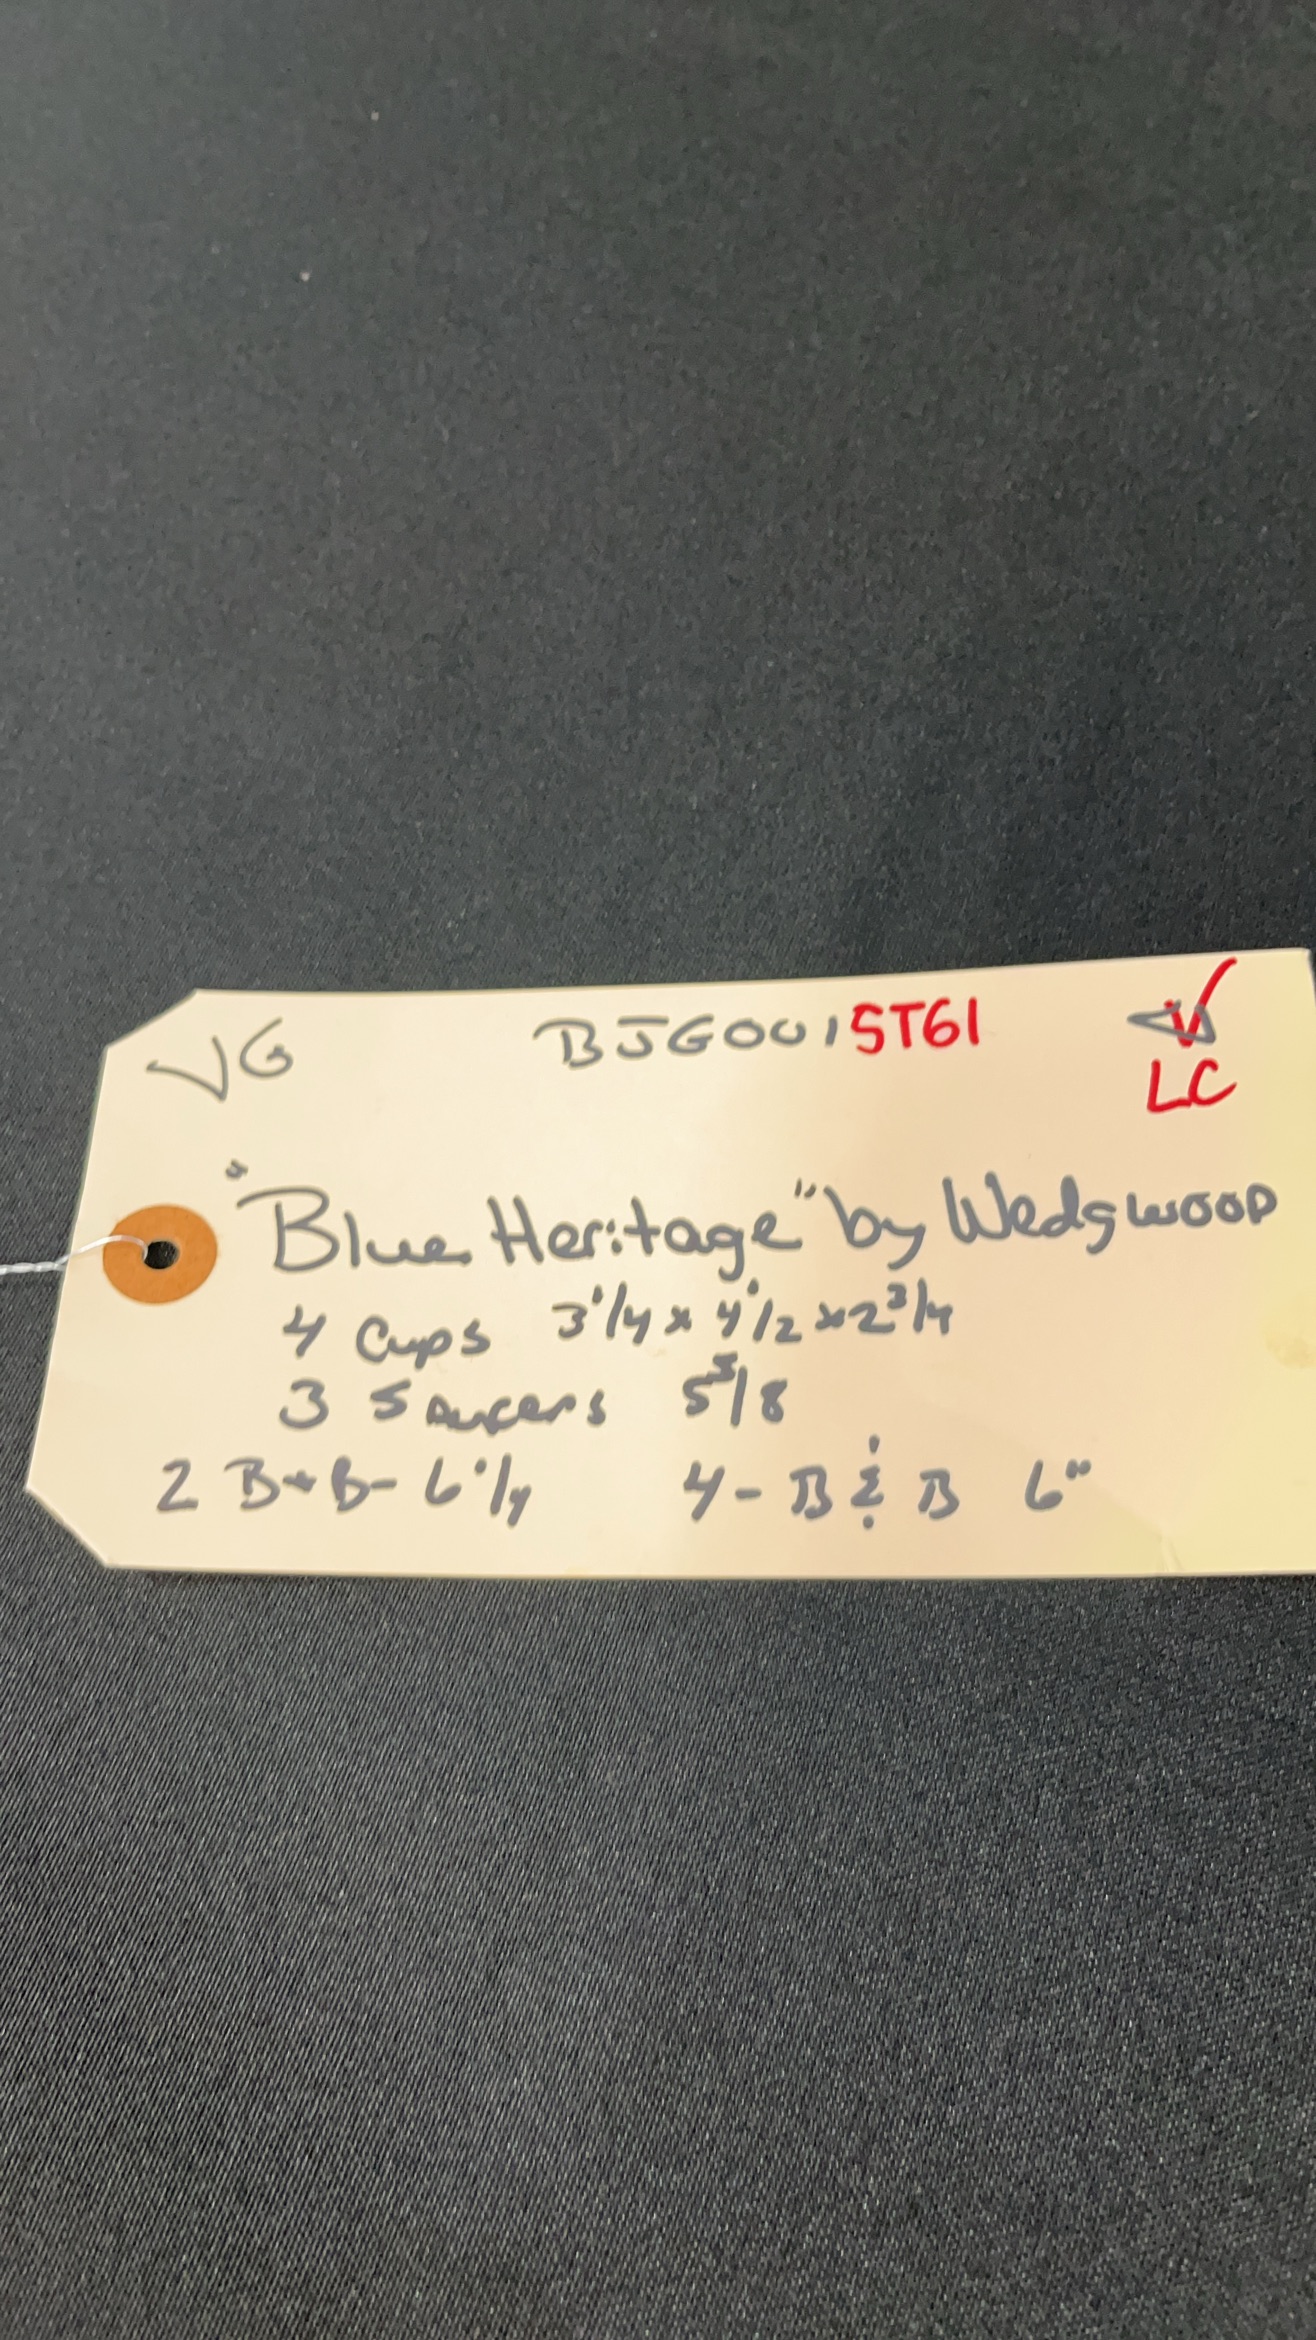 VG BJG001ST61 ✓
LC
"Blue Heritage" by Wedgwood
4 Cups 3 1/4 x 4 1/2 x 2 3/4
3 Saucers 5 5/8
2 B+B- 6 1/4 4 - B & B 6"